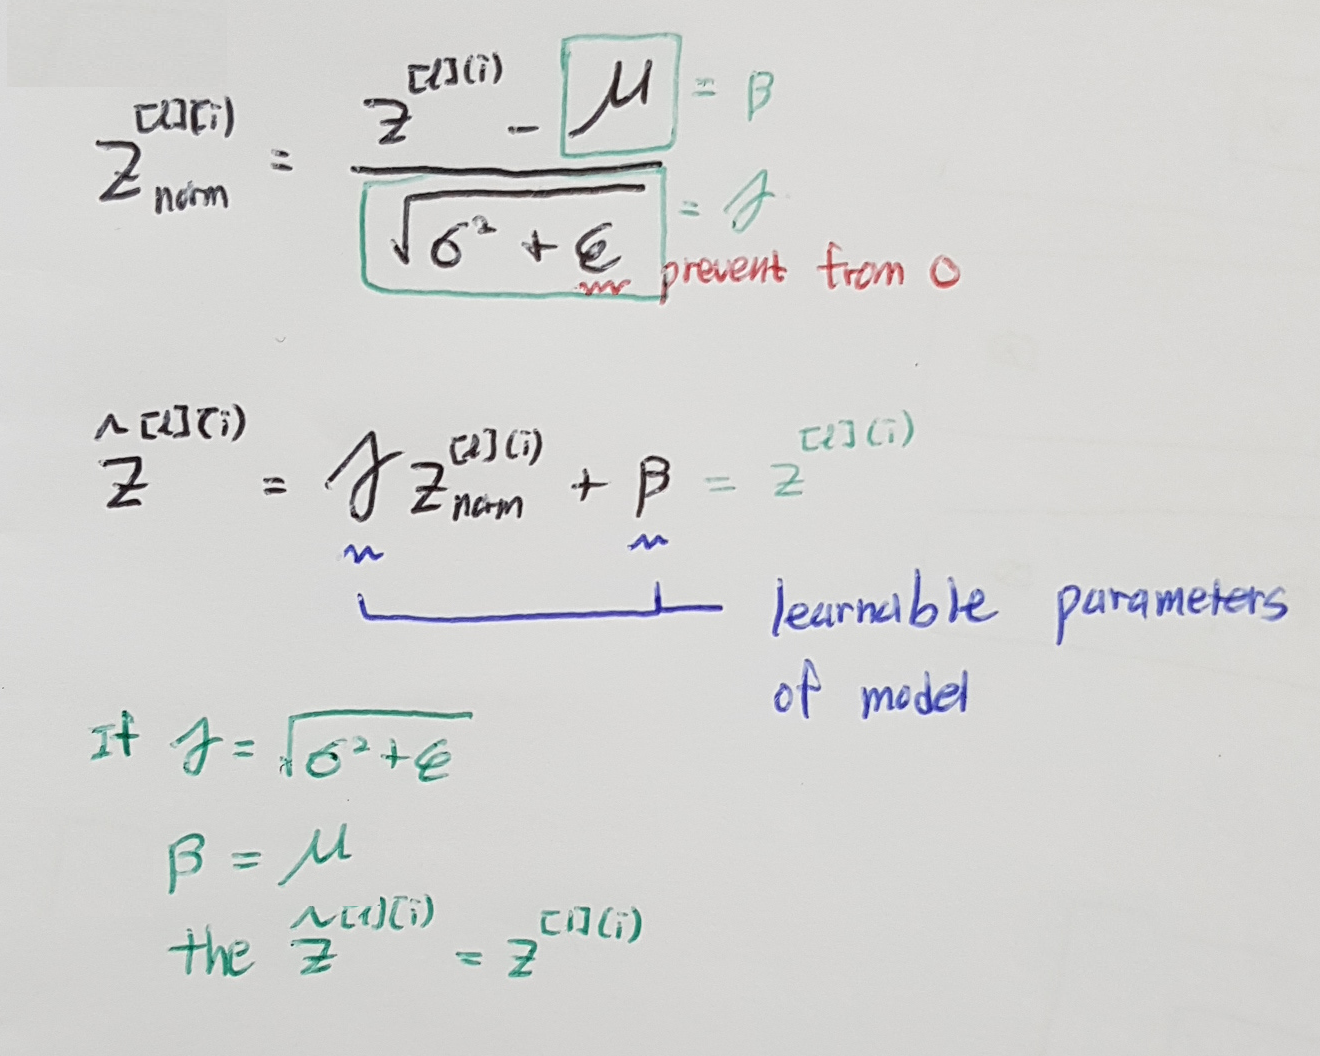 Z_norm^[l](i) = (z^[l](i) - μ) / √(σ² + ε)
= β
= γ
prevent from 0
z̃^[l](i) = γ z_norm^[l](i) + β = z^[l](i)
learnable parameters
of model
If γ = √(σ² + ε)
β = μ
the z̃^[l](i) = z^[l](i)